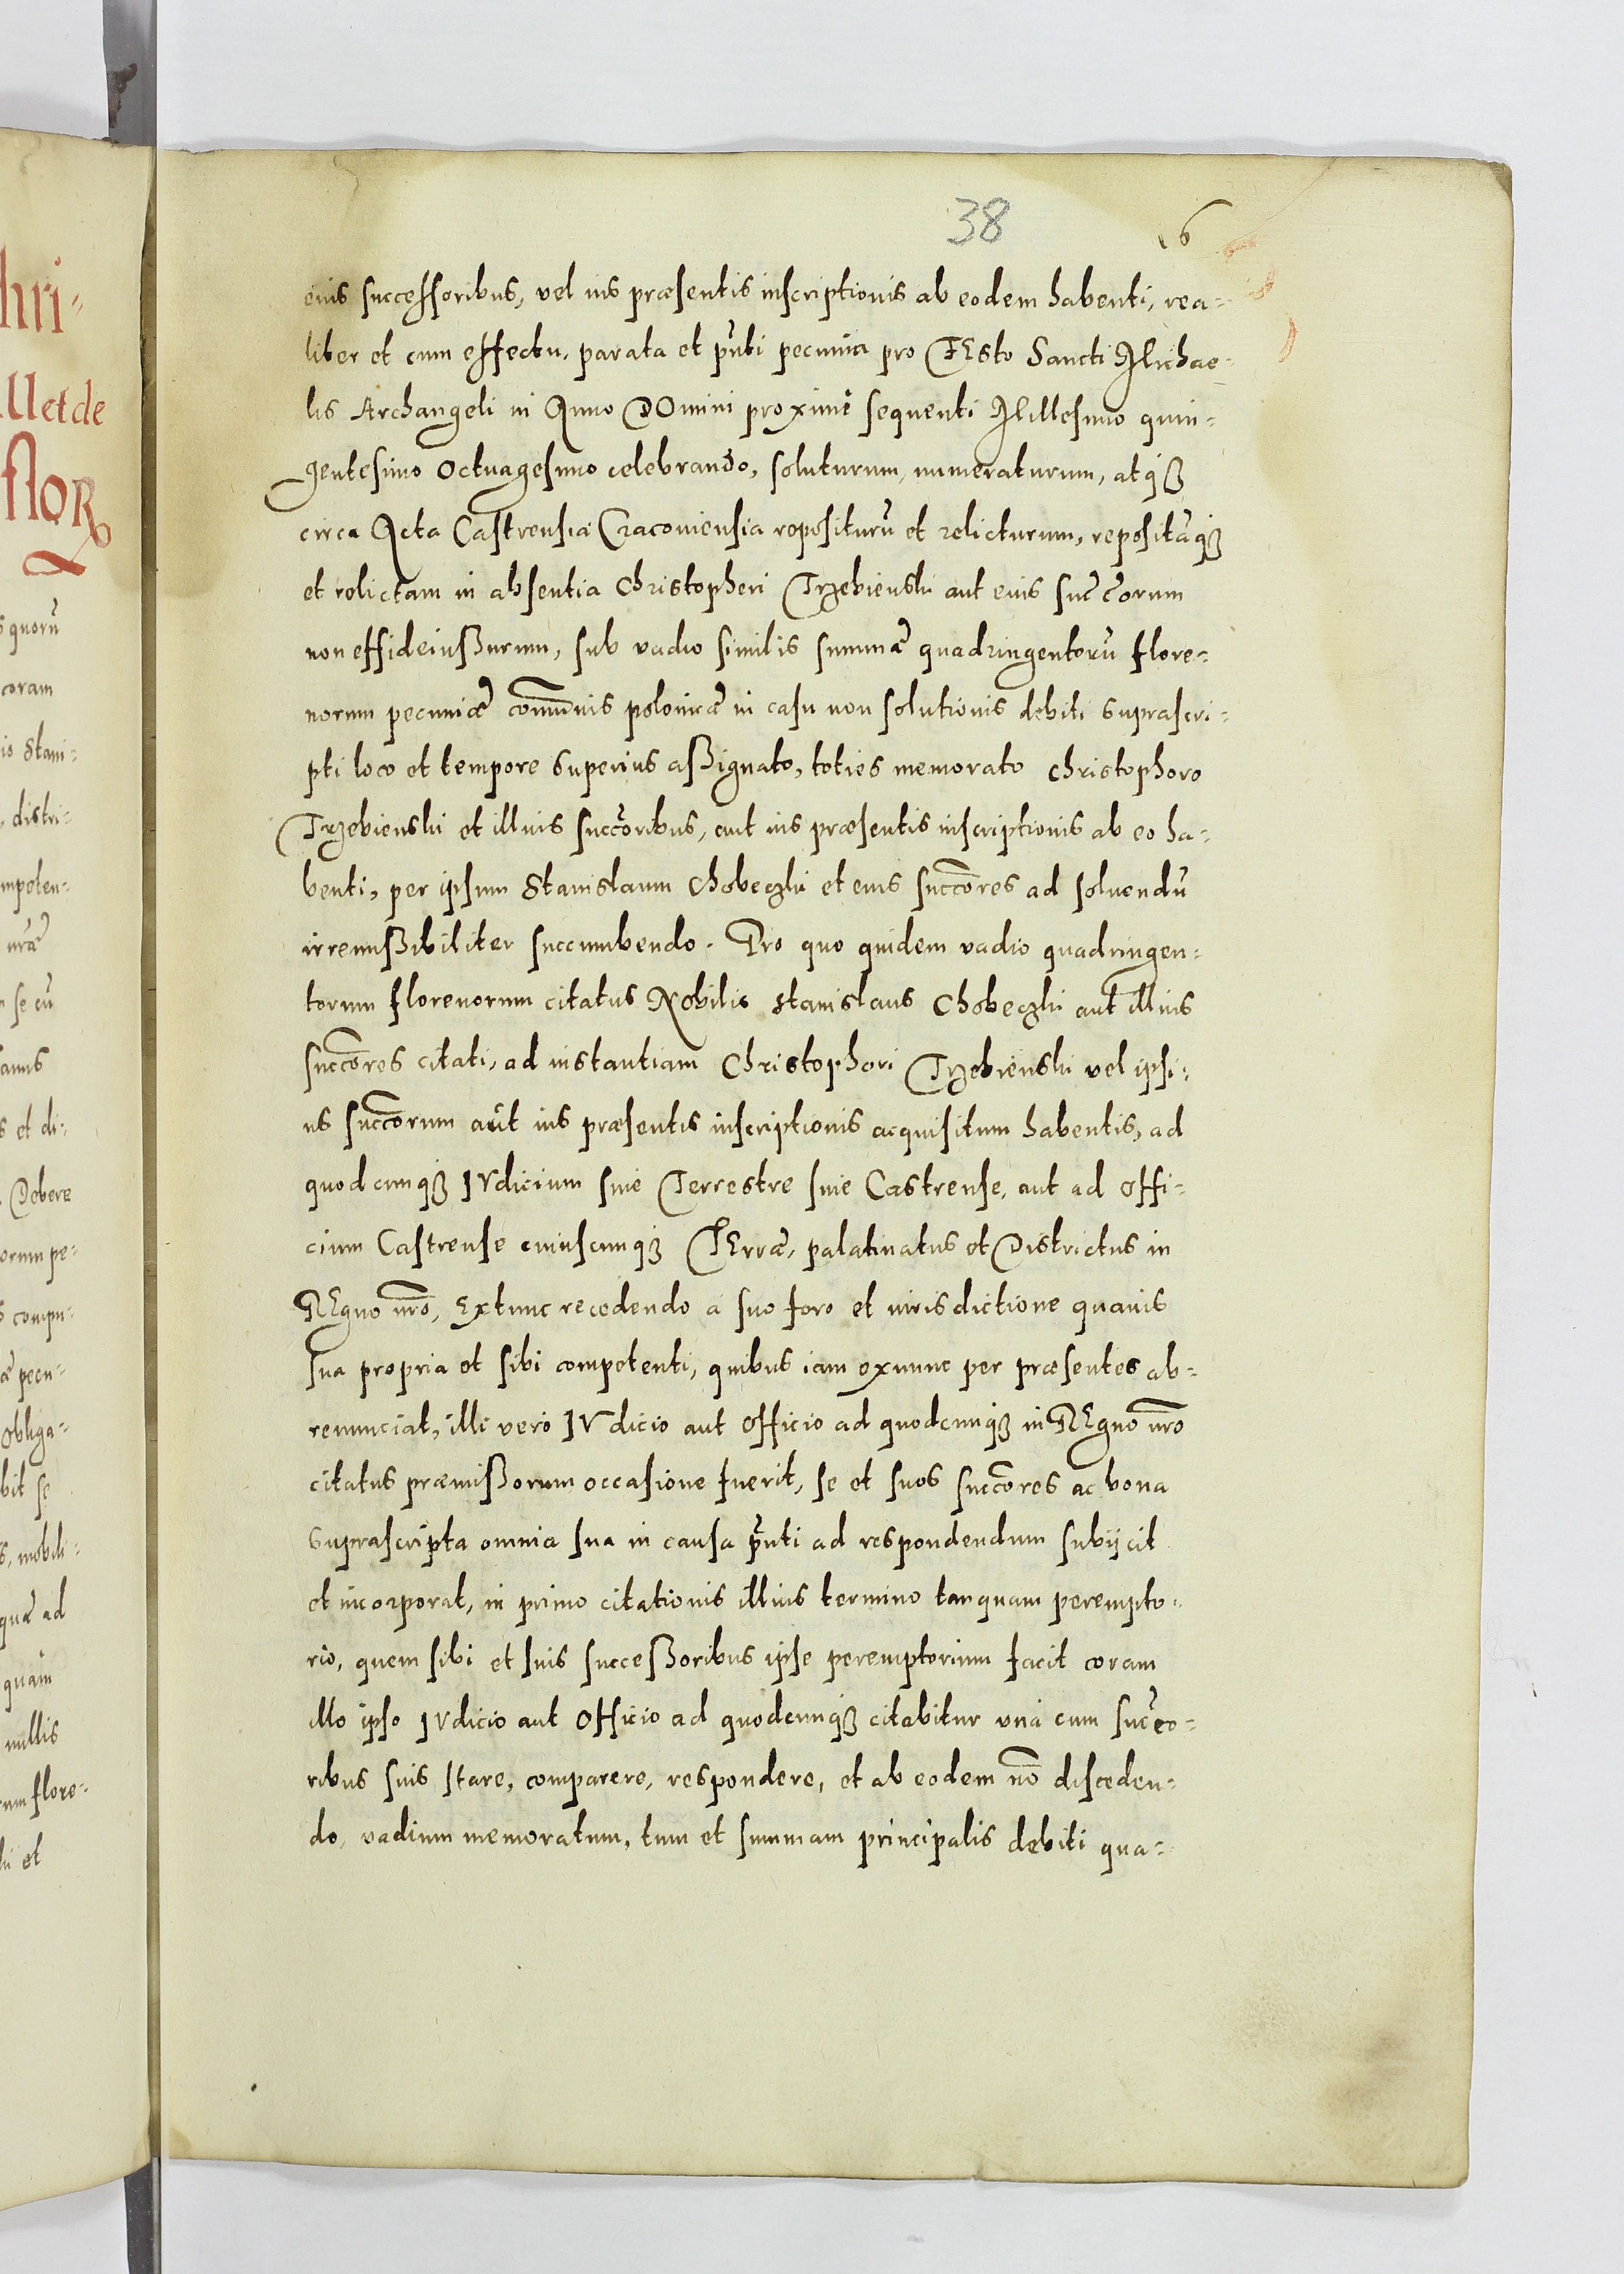 38
16
eius successoribus, vel ius præsentis inscriptionis ab eodem habenti, rea-
liter et cum effectu, parata et pñti pecunia pro FEsto Sancti Michae-
lis Archangeli in Anno DOmini proximè sequenti Millesimo quin-
gentesimo Octuagesimo celebrando, soluturum, numeraturum, atqꝫ
circa Acta Castrensia Cracoviensia repositurũ et relicturum, repositãqꝫ
et relictam in absentia Christopheri Trzebienski aut eius succ̃orum
non effideiußurum, sub vadio similis summæ quadringentorũ flore-
norum pecuniæ com̃unis polonicæ in casu non solutionis debiti suprascri-
pti loco et tempore superius aßignato, toties memorato Christophoro
Trzebienski et illius succ̃oribus, aut ius præsentis inscriptionis ab eo ha-
benti, per ipsum Stanislaum Chobeczki et eius succ̃ores ad soluendũ
irremißibiliter succumbendo. Pro quo quidem vadio quadringen-
torum florenorum citatus Nobilis Stanislaus Chobeczki aut illius
succ̃ores citati, ad instantiam Christophori Trzebienski vel ipsi-
us succ̃orum aut ius præsentis inscriptionis acquisitum habentis, ad
quodcunqꝫ IVdicium siue Terrestre siue Castrense, aut ad Offi-
cium Castrense cuiuscunqꝫ TErræ, palatinatus et Districtus in
REgno nr̃o, Extunc recedendo à suo foro et iurisdictione quauis
sua propria et sibi competenti, quibus iam exnunc per præsentes ab-
renunciat, illi verò IVdicio aut Officio ad quodcunqꝫ in REgno nr̃o
citatus præmißorum occasione fuerit, se et suos succ̃ores ac bona
suprascripta omnia sua in causa pñti ad respondendum subijcit
et incorporat, in primo citationis illius termino tanquam perempto-
rio, quem sibi et suis succeßoribus ipse peremptorium facit coram
illo ipso IVdicio aut Officio ad quodcunqꝫ citabitur unà cum succ̃o-
ribus suis stare, comparere, respondere, et ab eodem nõ disceden-
do, vadium memoratum, tum et summam principalis debiti qua-